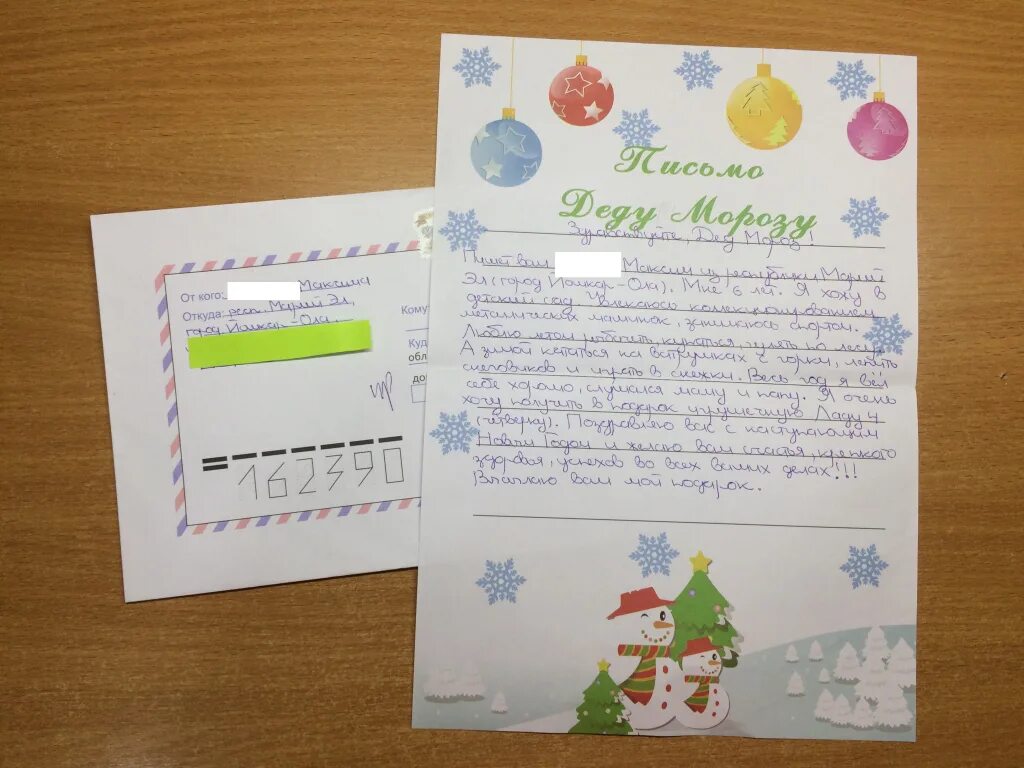 От кого: Максима
Откуда: респ. Марий Эл,
город Йошкар-Ола,
Кому
Куд
обл
до
162390
Письмо
Деду Морозу
Здравствуйте, Дед Мороз!
Пишет вам Максим из республики Марий
Эл (город Йошкар-Ола). Мне 6 лет. Я хожу в
детский сад. Увлекаюсь коллекционированием
металических машинок, занимаюсь спортом.
Люблю летом рыбачить, купаться, гулять по лесу.
А зимой кататься на ватрушках с горки, лепить
снеговиков и играть в снежки. Весь год я вёл
себя хорошо, слушался маму и папу. Я очень
хочу получить в подарок игрушечную Ладу 4
(четверку). Поздравляю вас с наступающим
Новым Годом и желаю вам счастья, крепкого
здоровья, успехов во всех ваших делах!!!
Высылаю вам мой подарок.